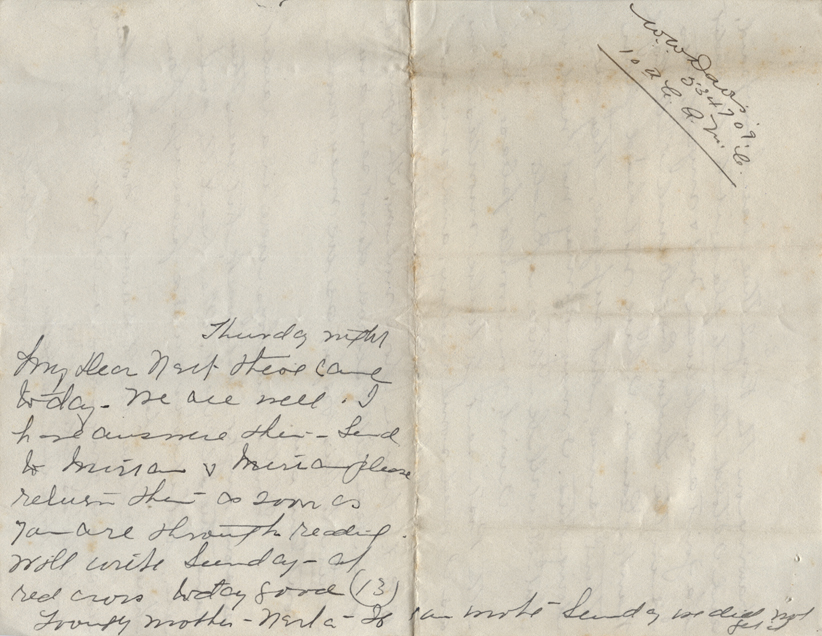 W. W. Davis.
534709.
10 C. C. A. M. C.
Thursday night
My Dear these came
today - we are well. I
have answere them - Send
to Mirriam & Mirriam please
return them as soon as
you are through reading.
Will write Sunday - at
red cross today good (13)
Loving mother - wrote Sunday we did not
get it